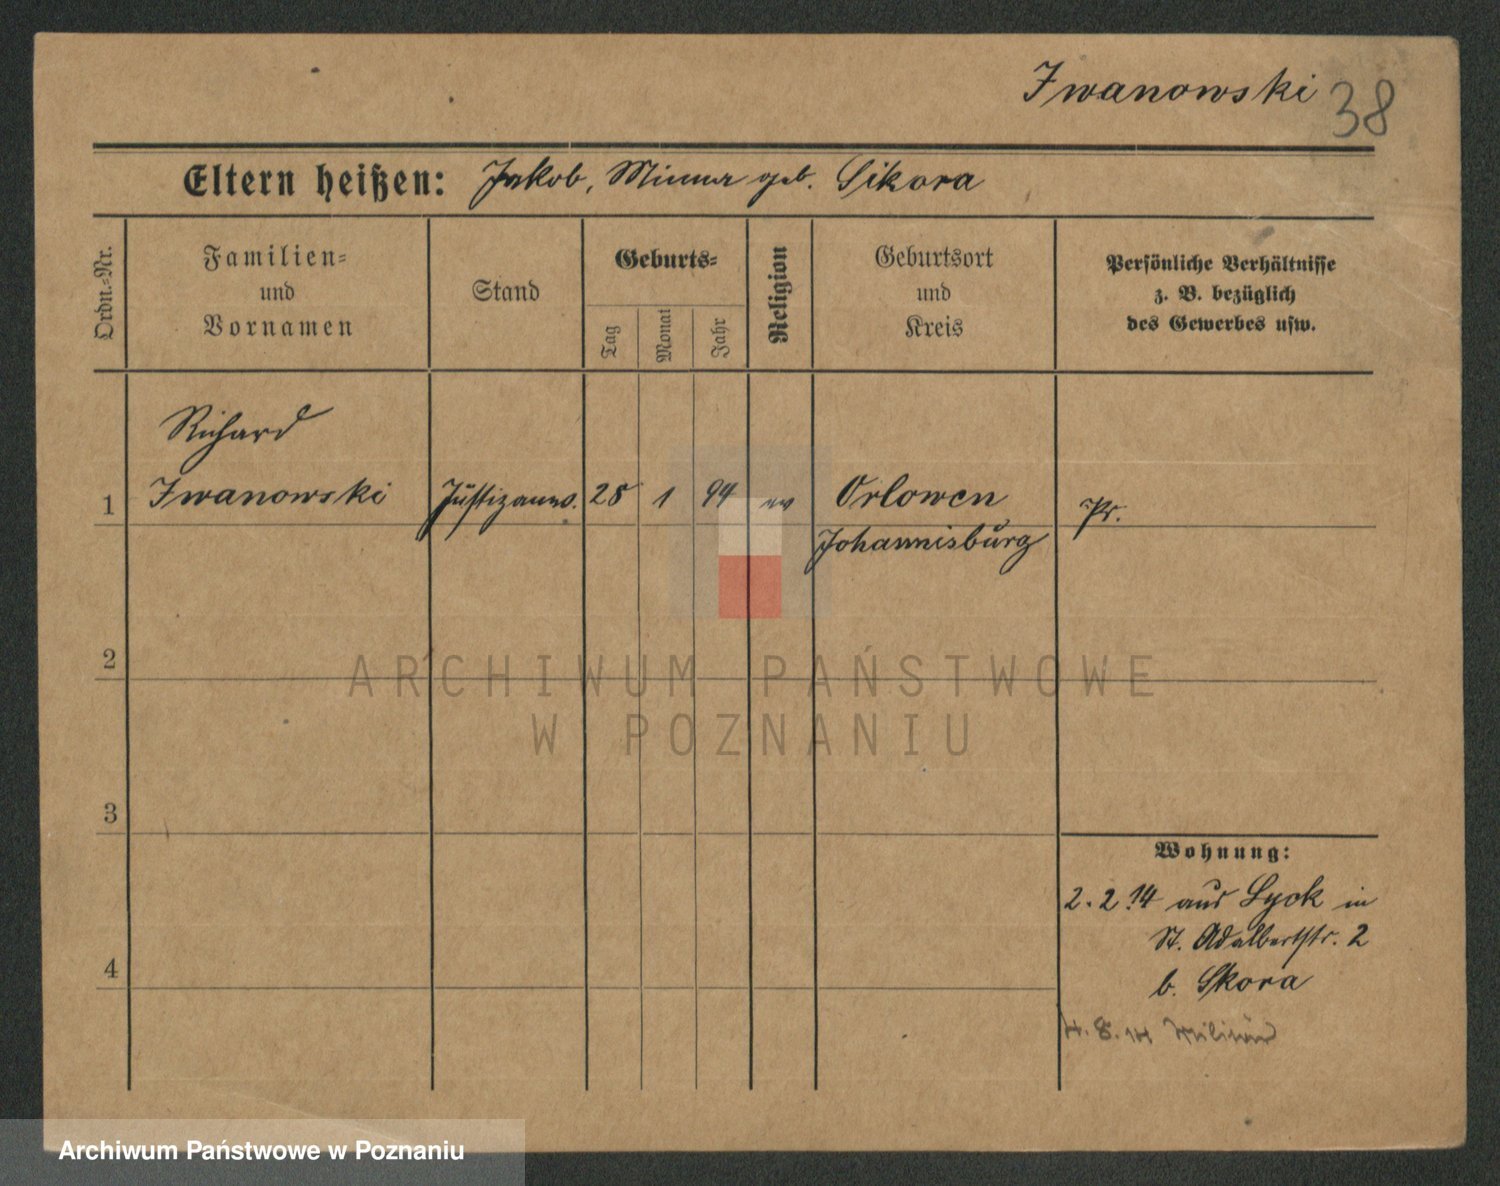 Iwanowski 38
Eltern heißen: Jakob, Minna geb. Sikora
Ordn.=Nr.
Familien=
und
Vornamen
Stand
Geburts=
Tag
Monat
Jahr
Religion
Geburtsort
und
Kreis
Persönliche Verhältnisse
z. B. bezüglich
des Gewerbes usw.
Richard
1 Iwanowski Justizanw. 28 1 94 ev Orlowen Pr.
Johannisburg
2
3
4
Wohnung:
2.2.14 aus Lyck in
St. Adalbertstr. 2
b. Skora
4.8.14 Militär
ARCHIWUM PAŃSTWOWE
W POZNANIU
Archiwum Państwowe w Poznaniu